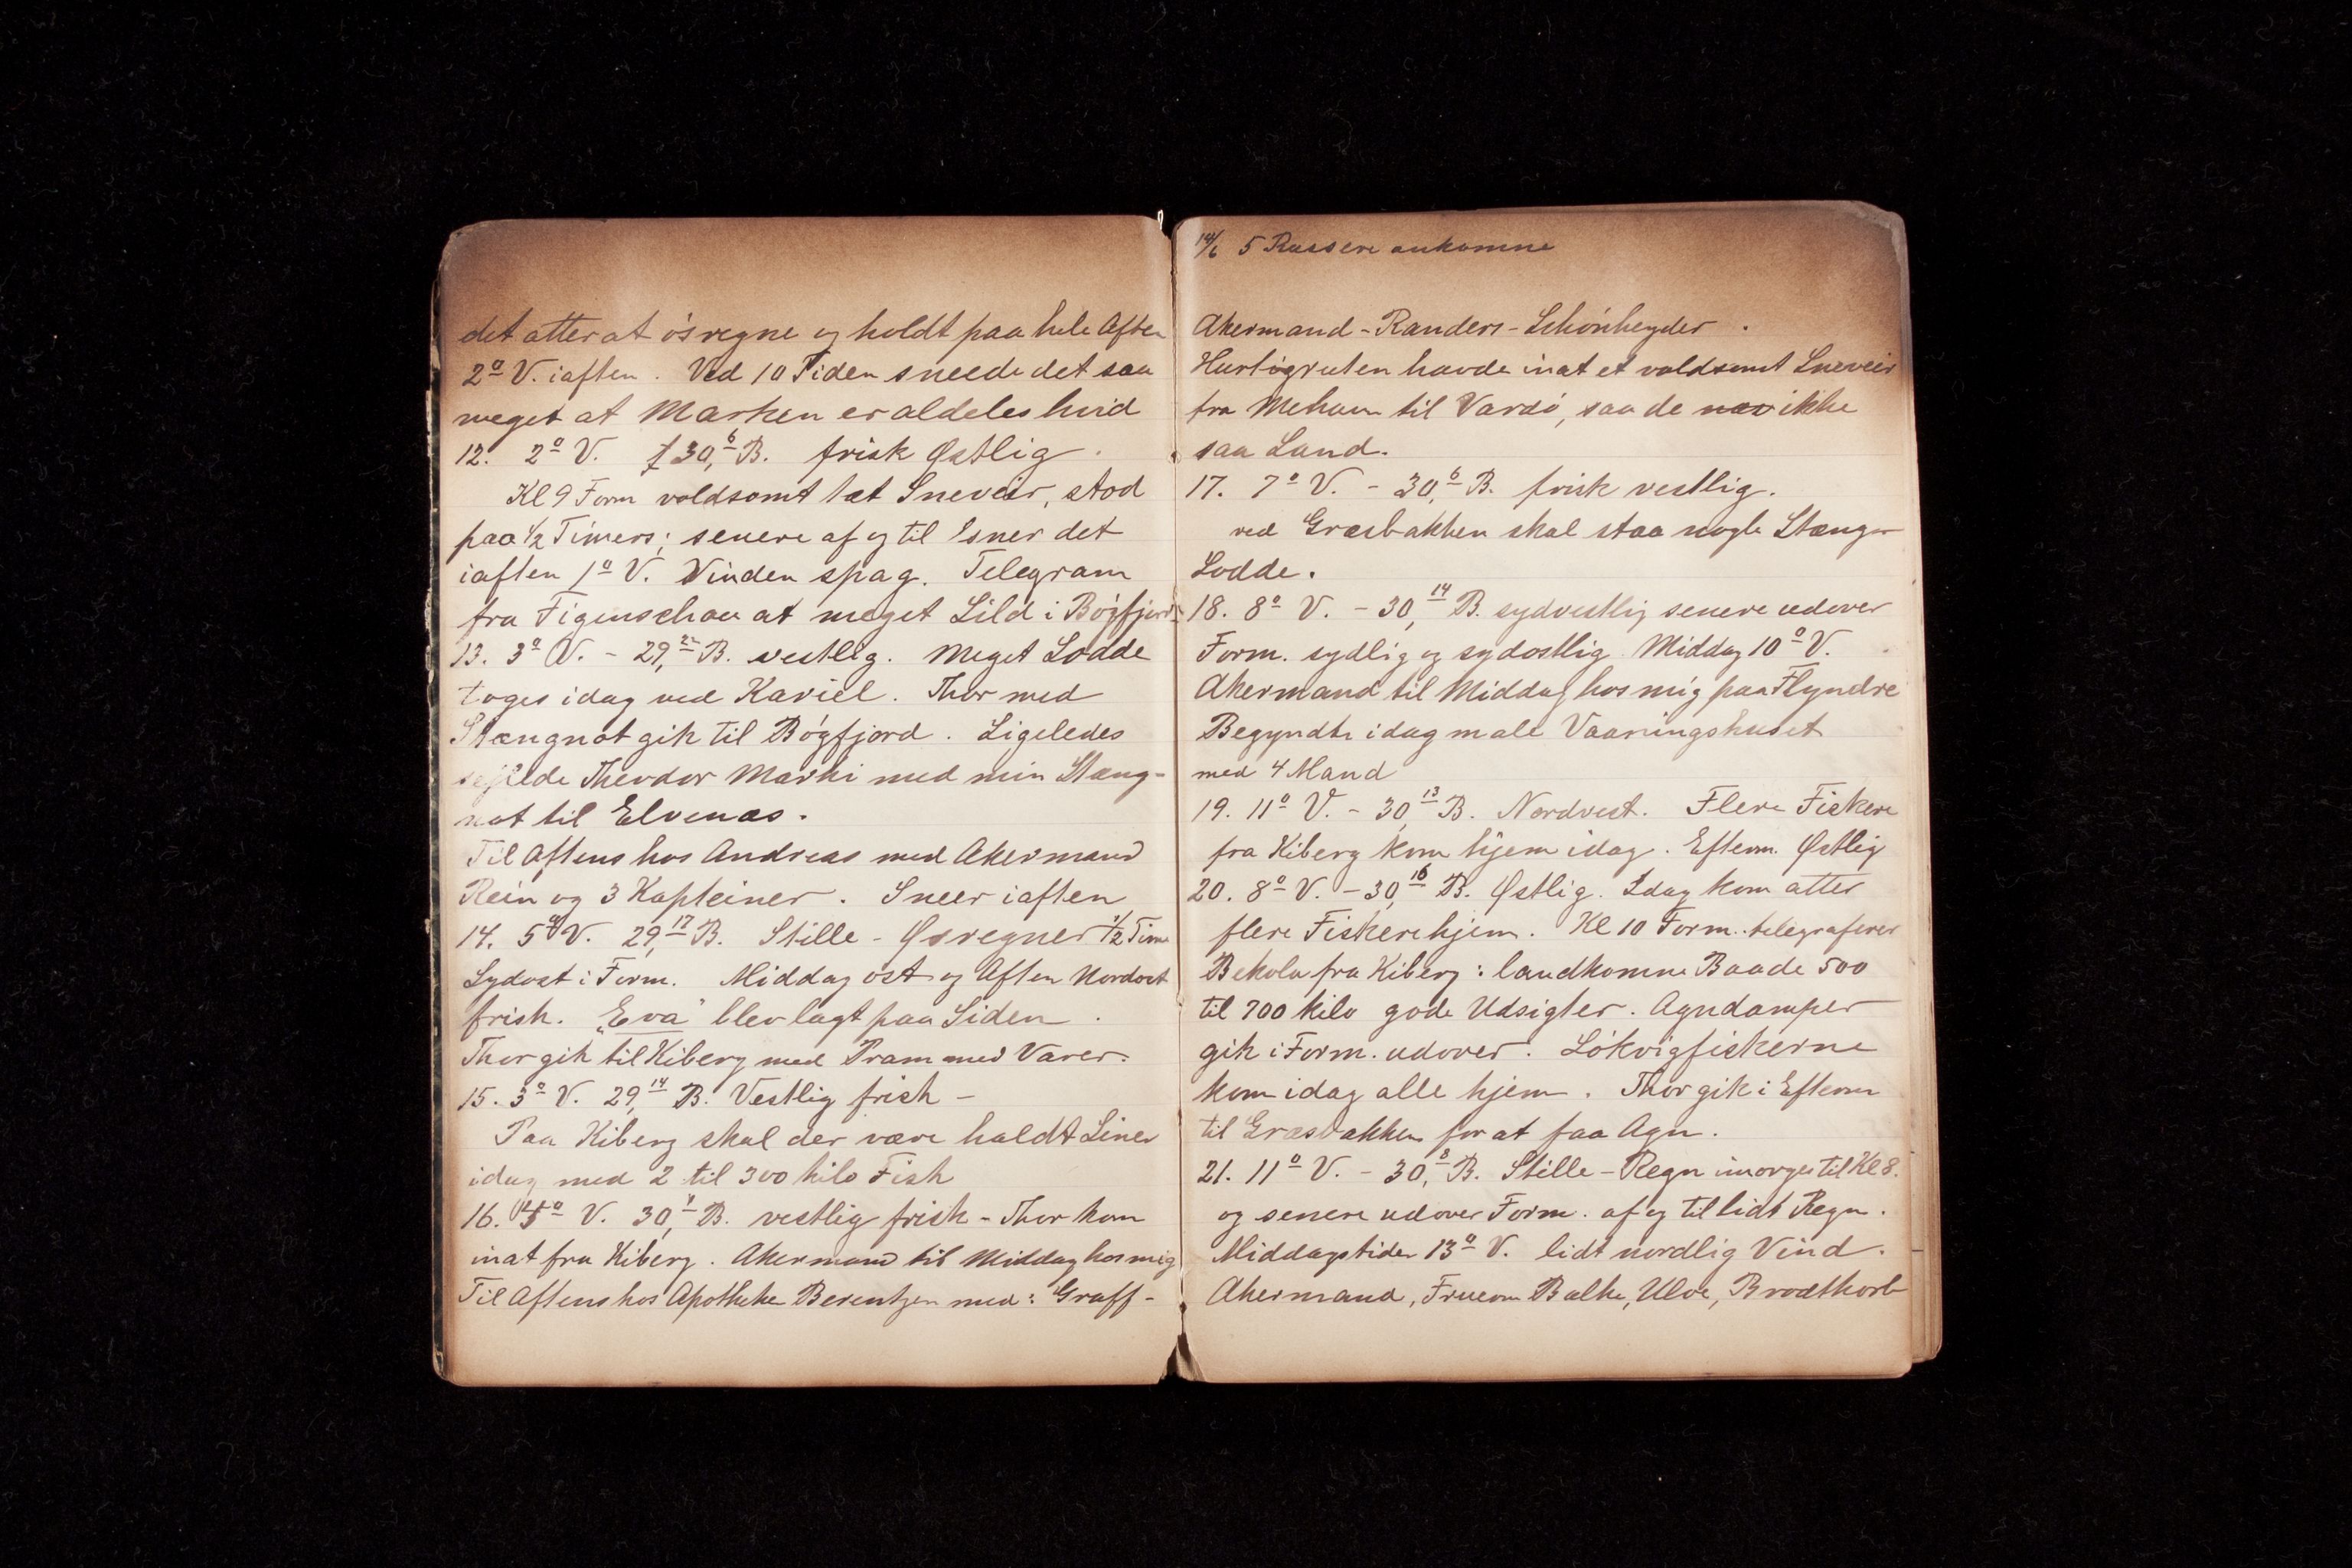 det atter at ósregne og holdt paa hele Aften
2º V. iaften. Ved 10 Tiden sneede det saa
meget at Marken er aldeles hvid
12. 2º V. 30,6 B. frisk Østlig.
Kl 9 Form voldsomt tæt Sneveir, stod
paa 1/2 Times; senere af og til sner det
iaften 1º V. Vinden spag. Telegram
fra Figenschau at meget Sild i Bógfjord
13. 3º V. - 29, B. vestlig. Meget Lodde
toges idag ved Kariel. Thor med
Stængnot gik til Bógfjord. Ligeledes
sejlede Theodor Marki med min Stæng-
not til Elvenæs.
Til Aftens hos Andreas med Akermand
Rein og 3 Kapteiner. Sneer iaften
14. 5º V. 29,17 B. Stille - Øsregner 1/2 Time
Sydost i Form. Middag óst og Aften Nordost
frisk. "Eva" blev lagt paa Siden.
Thor gik til Kiberg med Pram med Varer.
15. 3º V. 29,14 B. Vestlig frisk -
Paa Kiberg skal der være haldt Liner
idag med 2 til 300 kilo Fisk
16. º V. 30, B. vestlig frisk - Thor kom
inat fra Kiberg. Akermand til Middag hos mig
Til Aftens hos Apotheker Berentzen med: Graff-
14/6 5 Russere ankomne
Akermand - Randers - Schónheyder.
Hurtigruten havde inat et voldsomt Sneveir
fra Mehavn til Vardó, saa de ikke
saa Land.
17. 7º V. - 30,6 B. frisk vestlig.
ved Græsbakken skal staa nogle Stænger
Lodde.
18. 8º V. - 30,14 B. sydvestlig senere udover
Form. sydlig og sydostlig Middag 10º V.
Akermand til Middag hos mig paa Flyndre
Begyndte idag male Vaaningshuset
med 4 Mand
19. 11º V. - 30,13 B. Nordvest. Flere Fiskere
fra Kiberg kom hjem idag. Efterm. Østlig
20. 8º V. - 30,16 B. Østlig. Idag kom atter
flere Fiskere hjem. Kl 10 Form. telegraferer
fra Kiberg: landkomne Baade 500
til 700 kilo gode Udsigter. Agndamper
gik i Form. udover. Lókvigfiskerne
kom idag alle hjem. Thor gik i Efterm
til Græsbakken for at faa Agn.
21. 11º V. - 30,8 B. Stille - Regn imorges til Kl 8.
og senere udover Form. af og til lidt Regn.
Middagstider 13º V. lidt nordlig Vind.
Akermand, Fruerne Balke, Ulve, Brodtkorb